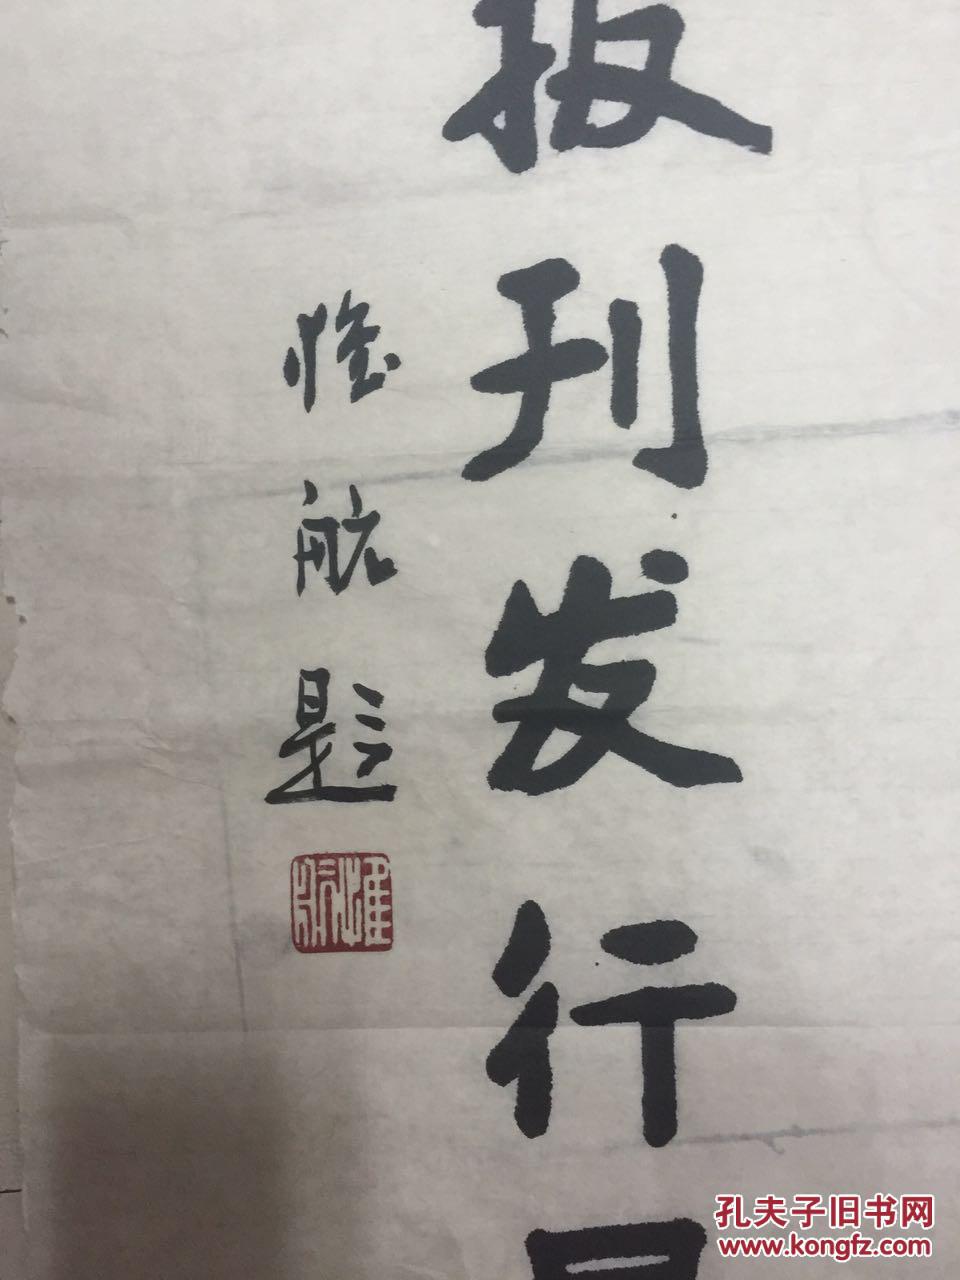 报刊发行
航题
孔夫子旧书网
www.kongfz.com